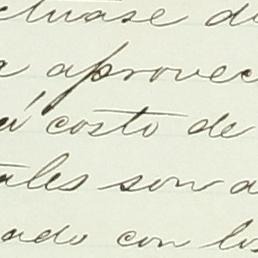 ctuase d
a aprovec
á costo de
ales son a
ado con los